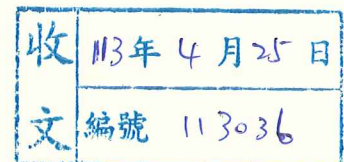 收文
113年4月25日
編號 113036